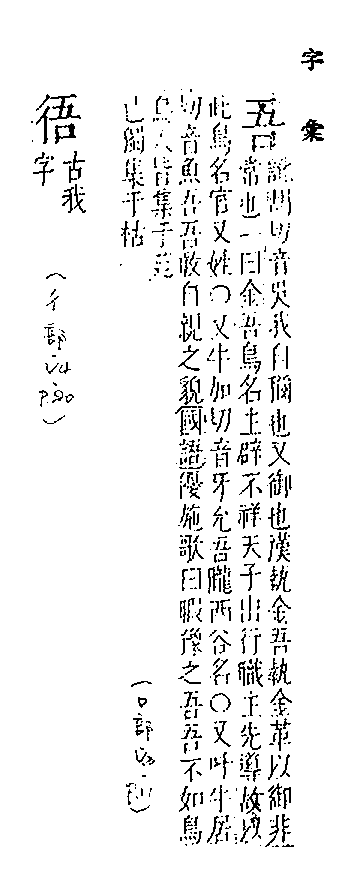 字彙
吾 訛胡切音吳我自稱也又御也漢執金吾執金革以御非
常也一曰金吾鳥名主辟不祥天子出行職主先導故以
此鳥名官又姓○又牛加切音牙允吾隴西谷名○又叶牛居
切音魚吾吾敢自親之貌國語優施歌曰暇豫之吾吾不如鳥
烏人皆集于苑
己獨集于枯
(口部
𢓲 古我
字
(彳部